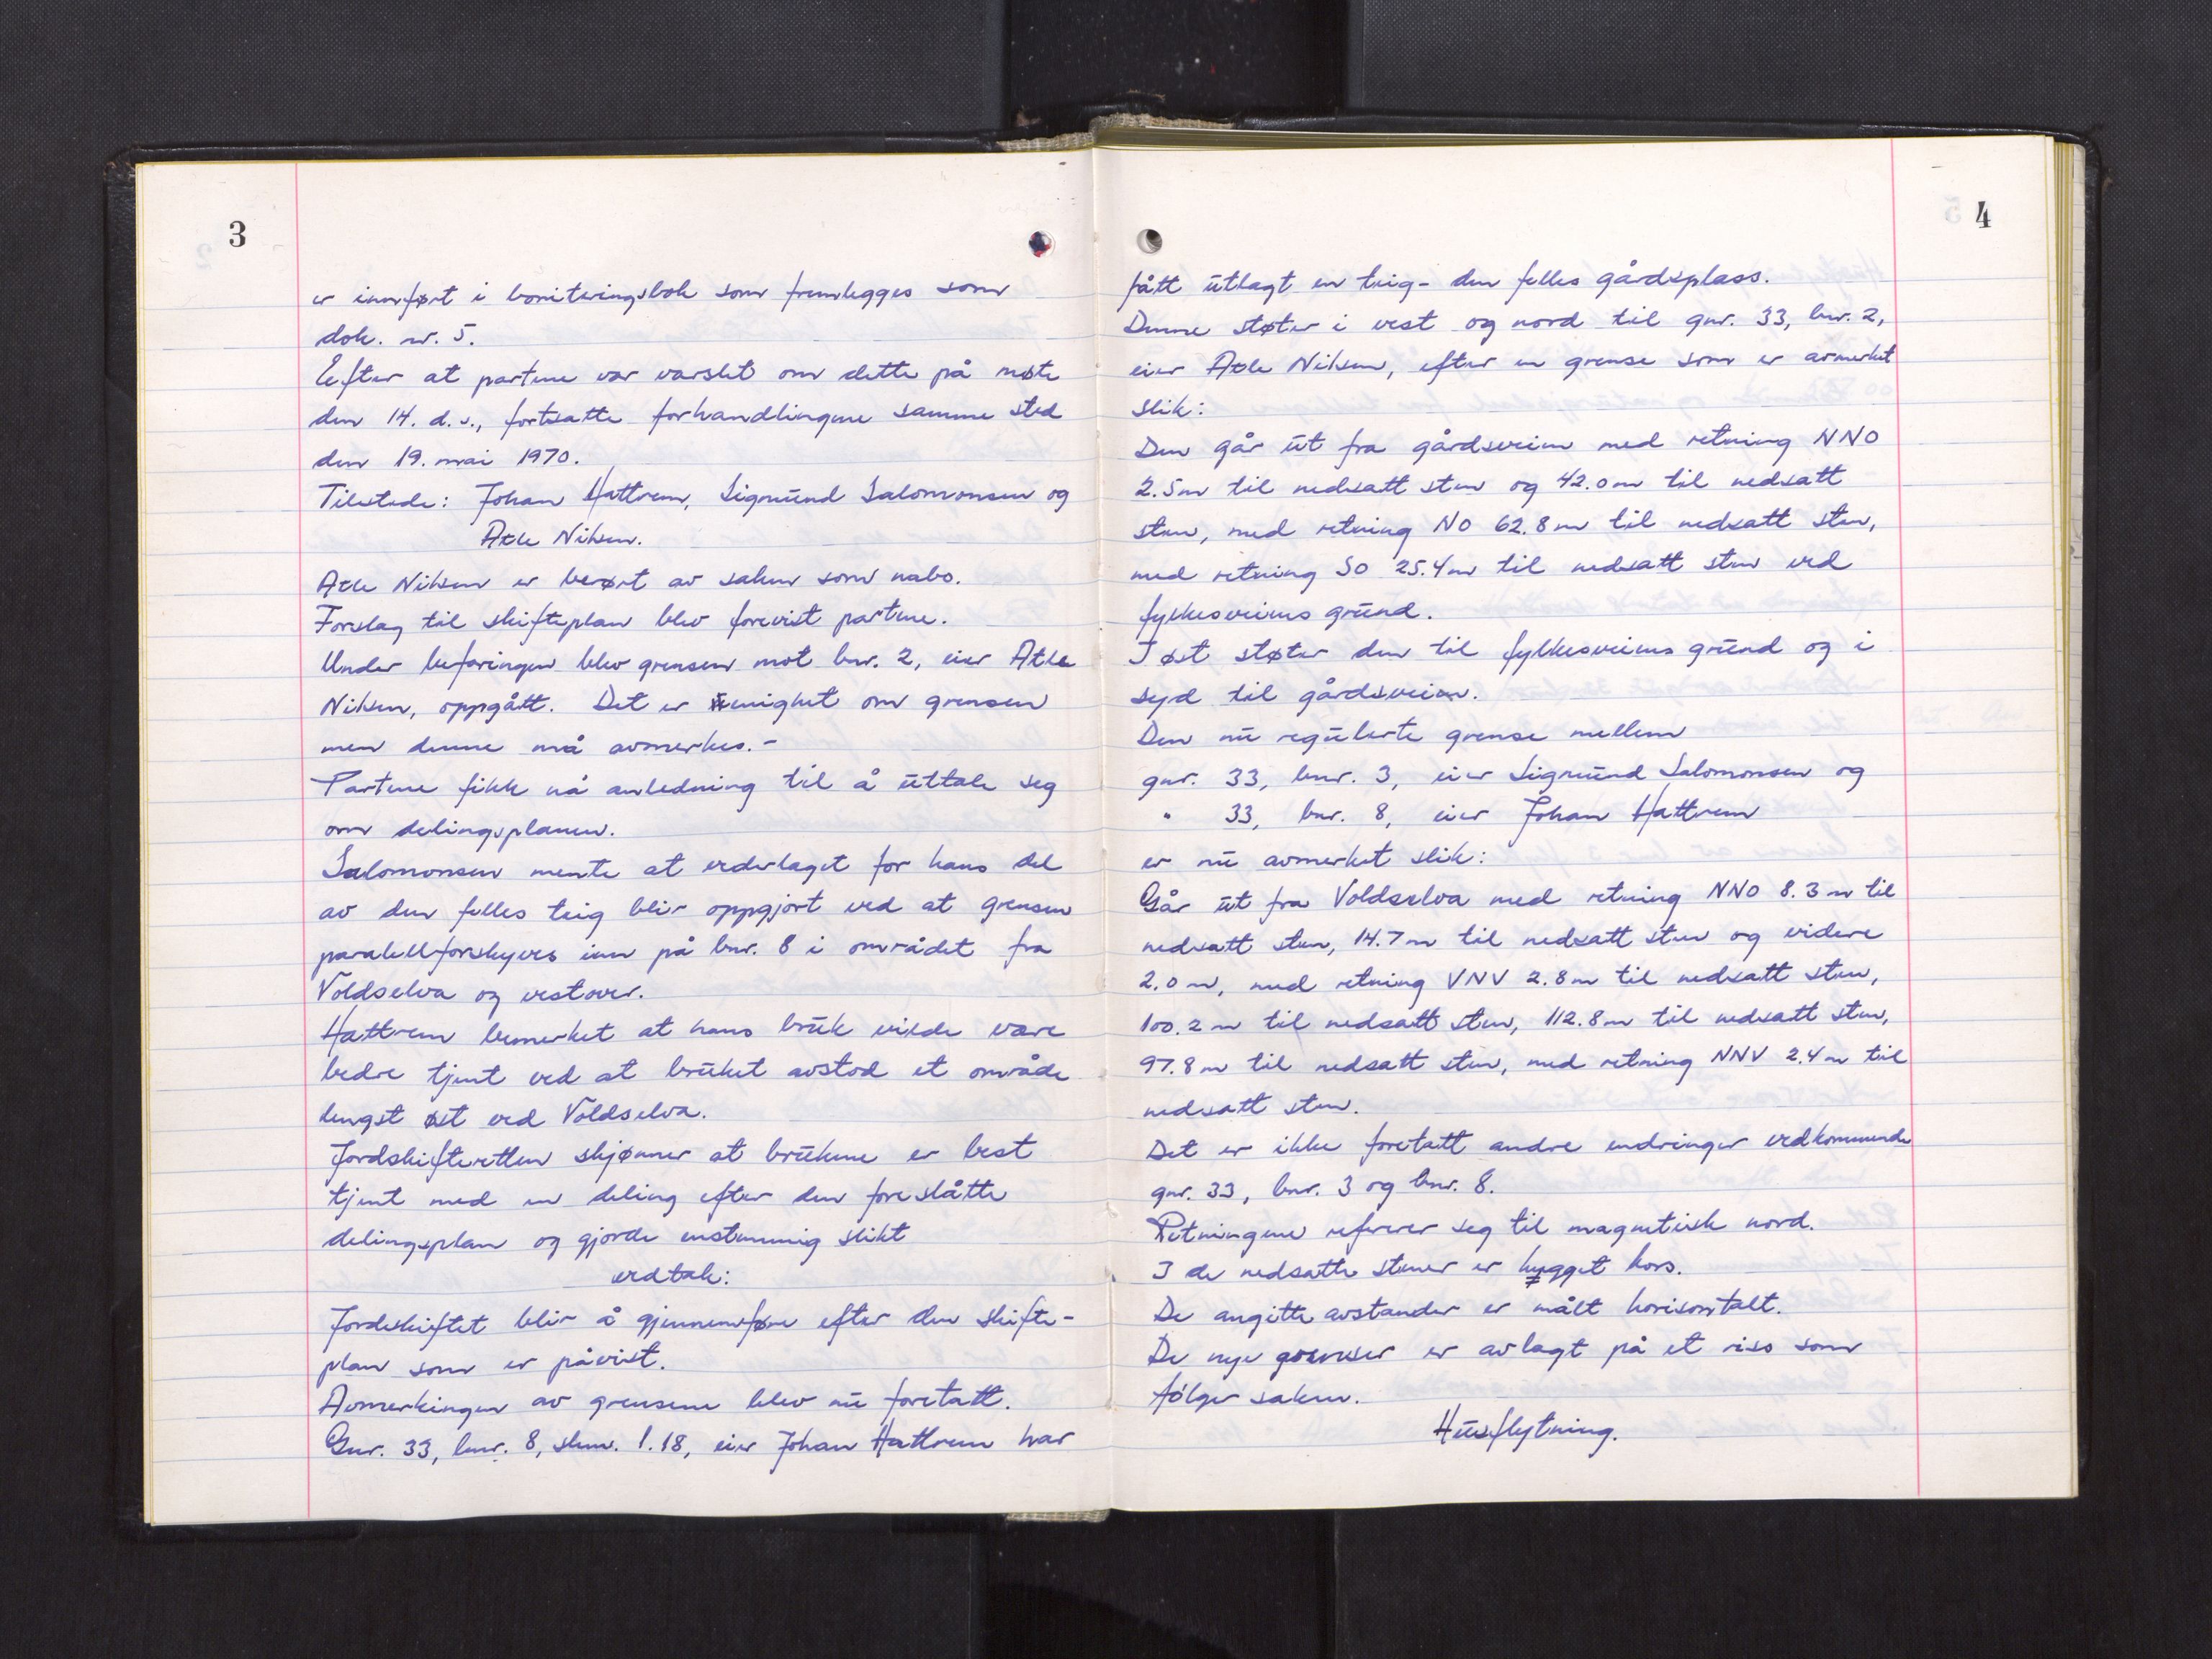 3
er innført i boniteringsbok som fremlegges som
dok. nr. 5.
Efter at partene var varslet om dette på møte
den 14. d.s., fortsatte forhandlingene samme sted
den 19. mai 1970.
Tilstede: Johan Hattrem, Sigmund Salomonsen og
Atle Nilsen.
Atle Nilsen er berørt av saken som nabo.
Forslag til skifteplan blev forevist partene.
Under befaringen blev grensen mot bnr. 2, eier Atle
Nilsen, oppgått. Det er enighet om grensen
men denne må avmerkes.-
Partene fikk nå anledning til å uttale seg
om delingsplanen.
Salomonsen mente at vederlaget for hans del
av den felles teig blir oppgjort ved at grensen
paralellforskyves inn på bnr. 8 i området fra
Voldselva og vestover.
Hattrem bemerket at hans bruk vilde være
bedre tjent ved at bruket avstod et område
lengst øst ved Voldselva.
Jordskifteretten skjønner at brukene er best
tjent med en deling efter den foreslåtte
delingsplan og gjorde enstemmig slikt
vedtak:
Jordskiftet blir å gjennemføre efter den skifte-
plan som er påvist.
Avmerkingen av grensene blev nu foretatt.
Gnr. 33, bnr. 8, skm. 1.18, eier Johan Hattrem har
4
fått utlagt en teig - den felles gårdsplass.
Denne støter i vest og nord til gnr. 33, bnr. 2,
eier Atle Nilsen, efter en grense som er avmerket
slik:
Den går ut fra gårdsveien med retning NNO
2.5m til nedsatt sten og 42.0m til nedsatt
sten, med retning NO 62.8m til nedsatt sten,
med retning SO 25.4m til nedsatt sten ved
fylkesveiens grund.
I øst støter den til fylkesveiens grund og i
syd til gårdsveien.
Den nu regulerte grense mellem
gnr. 33, bnr. 3, eier Sigmund Salomonsen og
" 33, bnr. 8, eier Johan Hattrem
er nu avmerket slik:
Går ut fra Voldselva med retning NNO 8.3m til
nedsatt sten, 14.7m til nedsatt sten og videre
2.0m, med retning VNV 2.8m til nedsatt sten,
100.2m til nedsatt sten, 112.8m til nedsatt sten,
97.8m til nedsatt sten, med retning NNV 2.4m til
nedsatt sten.
Det er ikke foretatt andre endringer vedkommende
gnr. 33, bnr. 3 og bnr. 8.
Retningene referer seg til magnetisk nord.
I de nedsatte stener er hugget kors.
De angitte avstander er målt horisontalt.
De nye grenser er avlagt på et riss som
følger saken.
Husflytning.